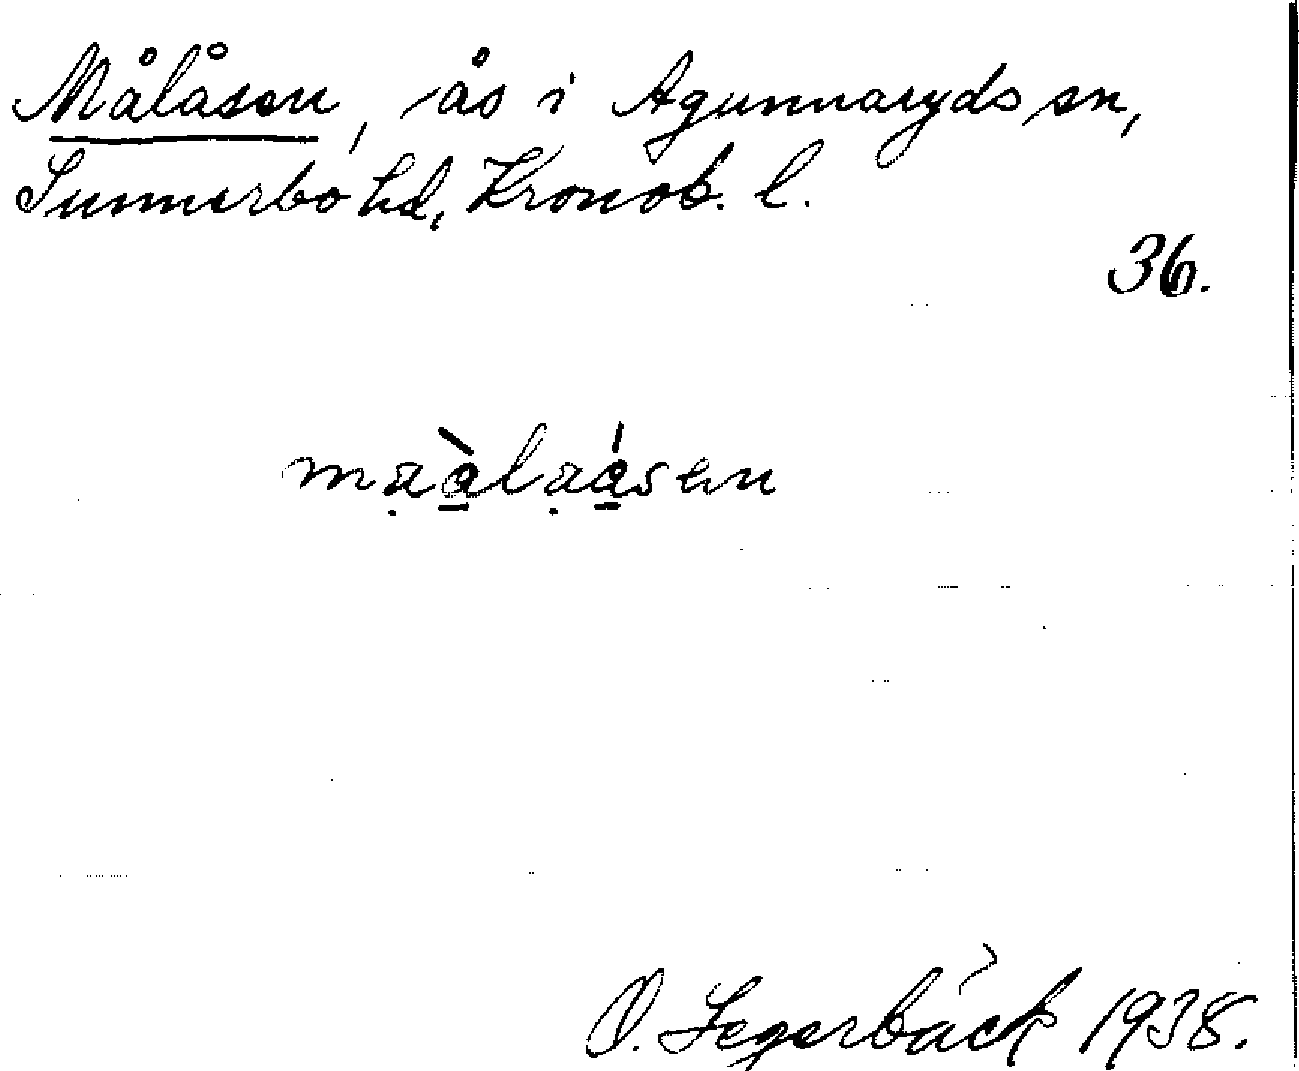 Målåsen, ås i Agunnaryds sn,
Sunnerbo hd, Kronob. l.
36.
maàlaásen
O. Segerbäck 1938.